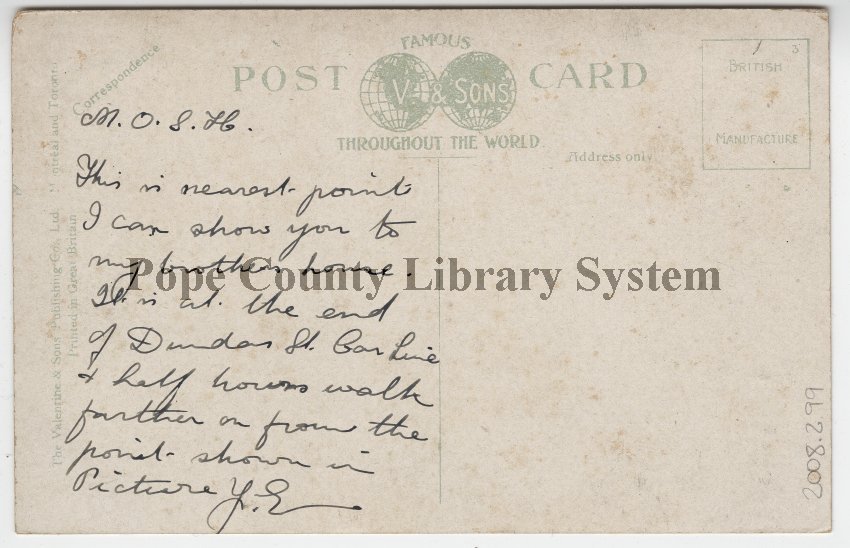 FAMOUS
POST CARD
V & SONS
THROUGHOUT THE WORLD
BRITISH
MANUFACTURE
3
Correspondence
Address only
The Valentine & Sons' Publishing Co., Ltd. Montreal and Toronto
Printed in Great Britain
M. O. S. H.
This is nearest point
I can show you to
my brothers house.
It is at the end
of Dundas St. Car Line
& half hours walk
farther on from the
point shown in
Picture Y.E
Pope County Library System
2008.299